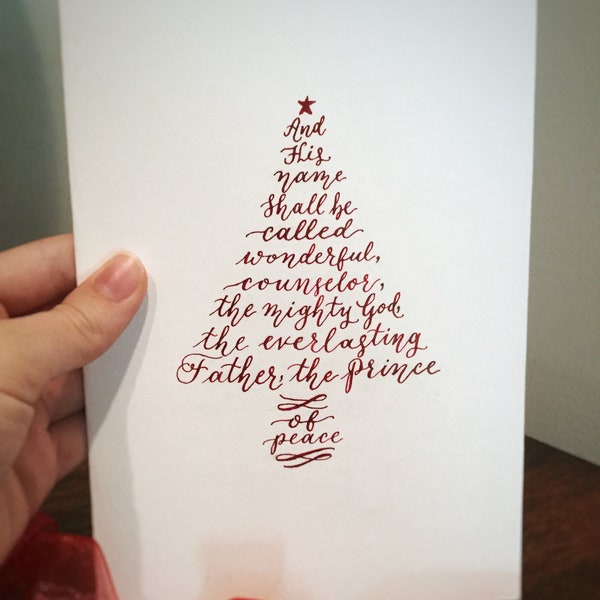 And
His
name
shall be
called
wonderful,
counselor,
the mighty God,
the everlasting
Father, the prince
of
peace